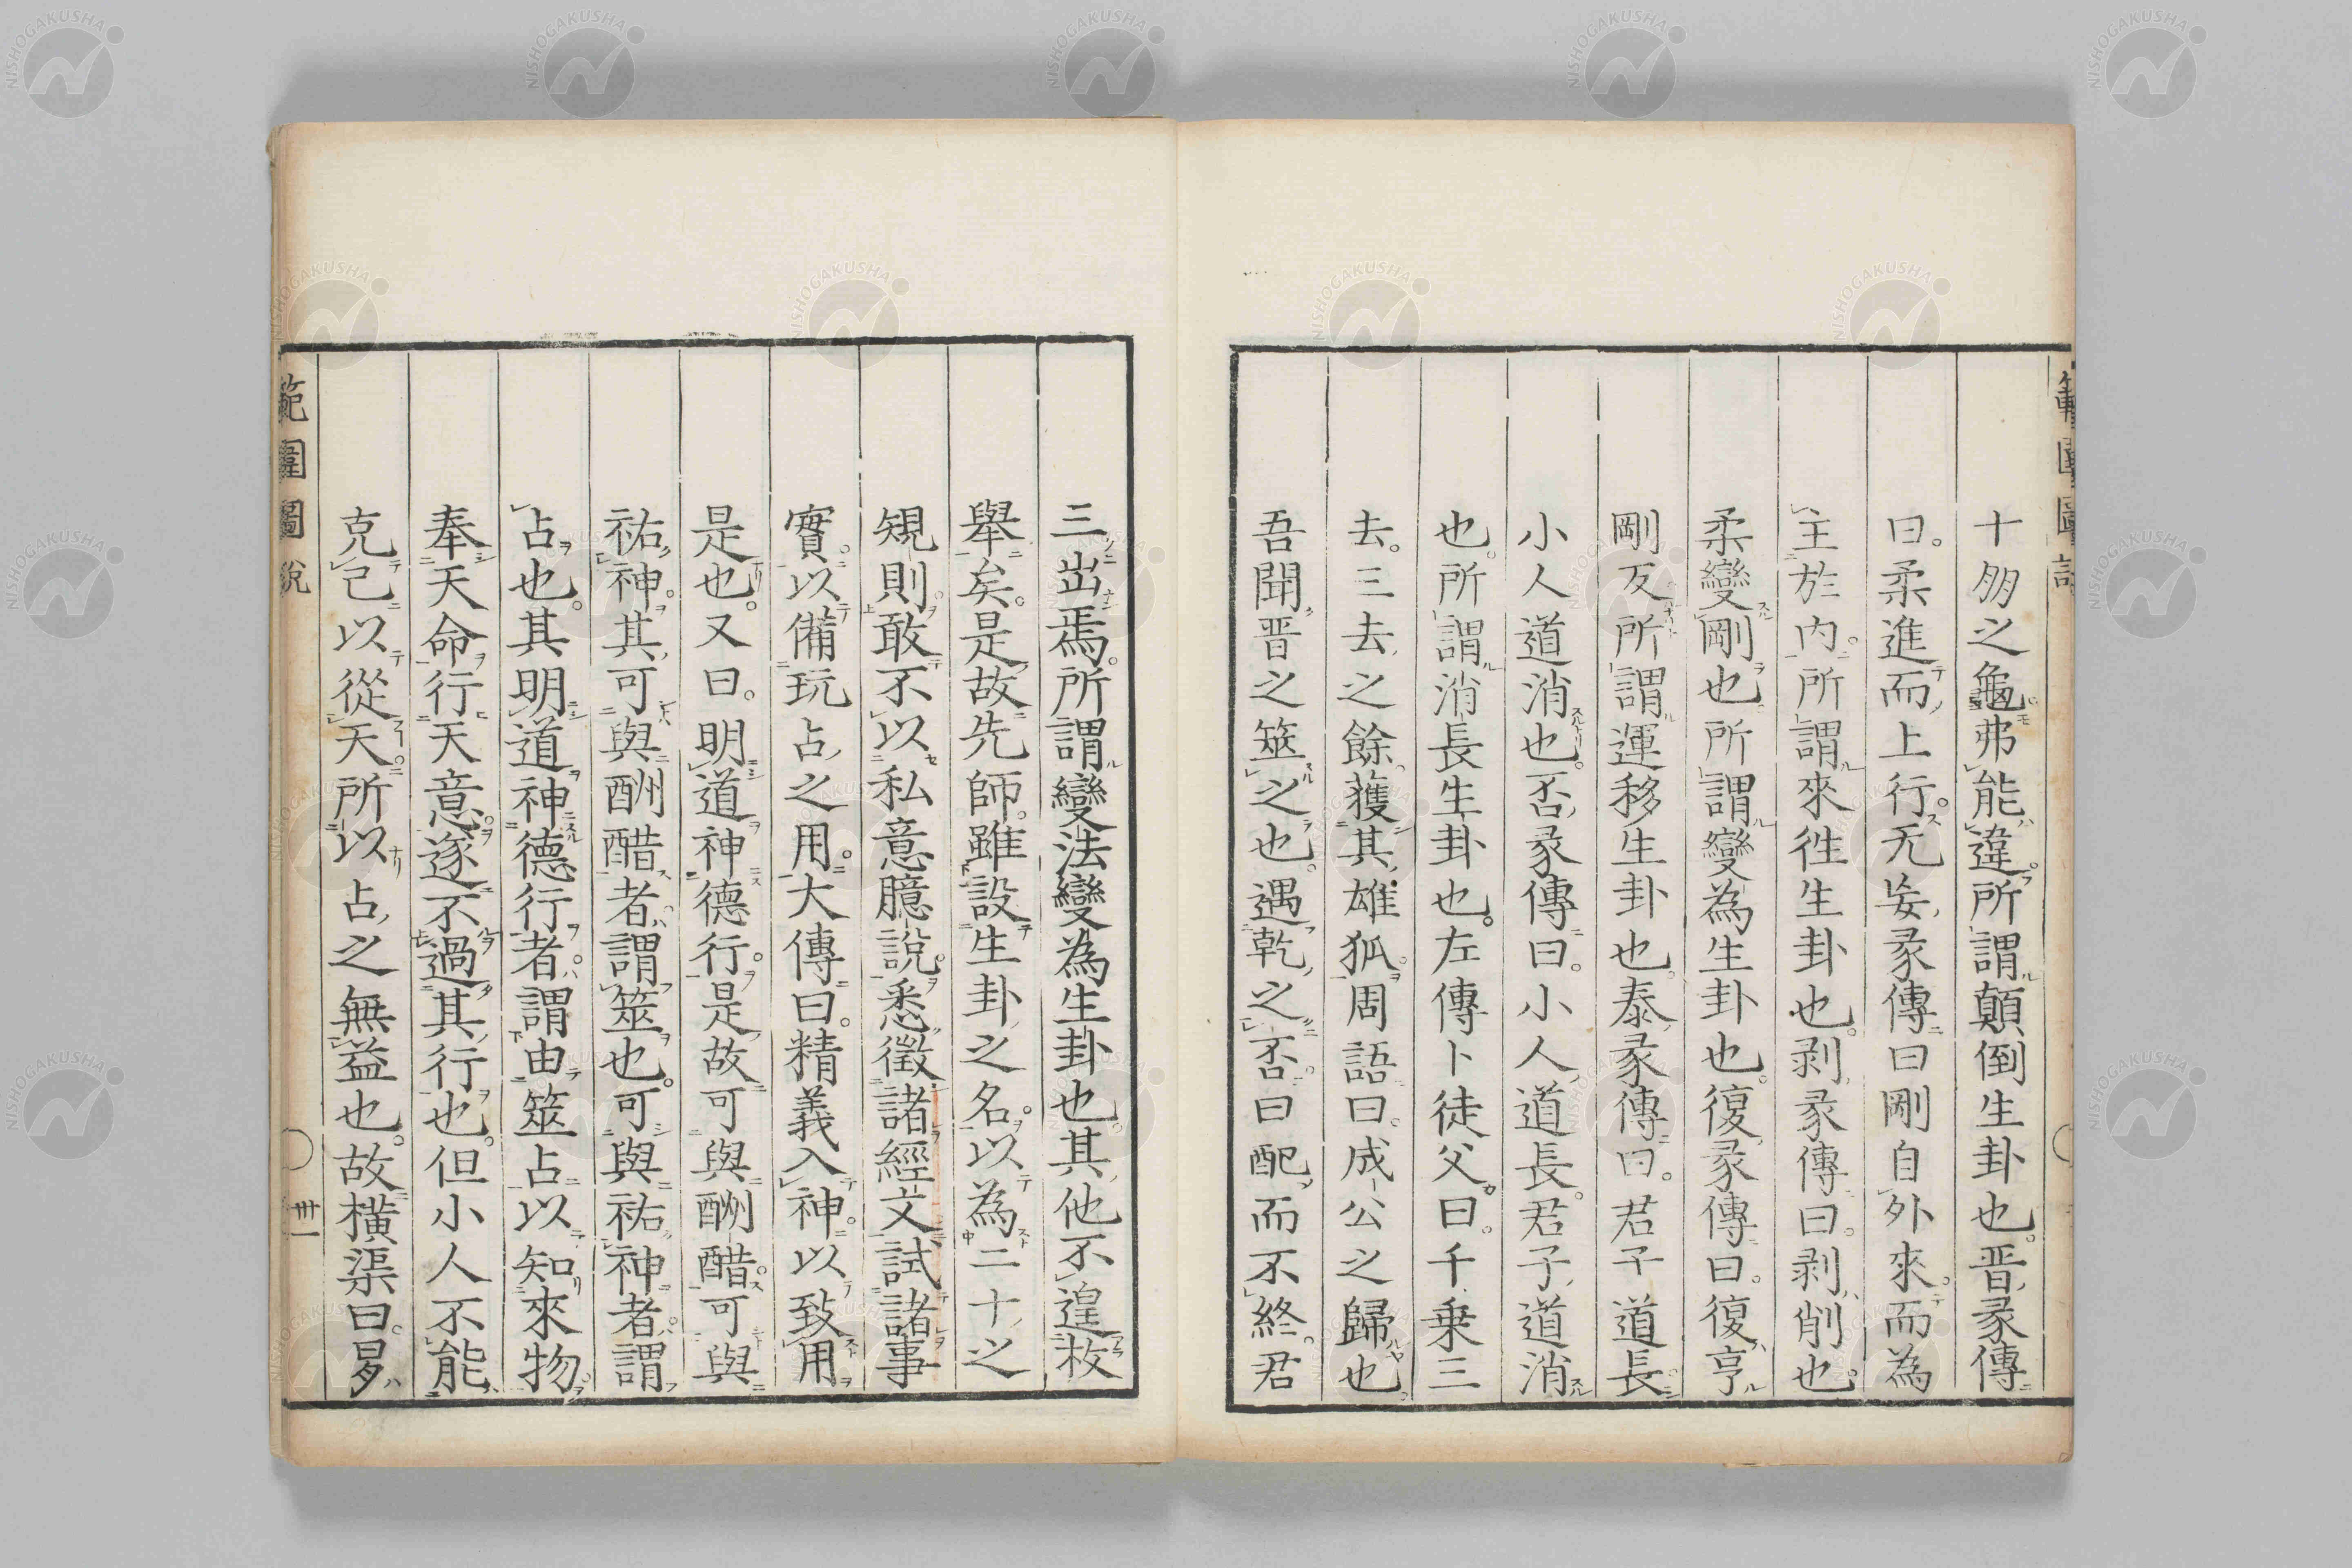 十朋之龜弗能違所謂顛倒生卦也晋彖傳
曰柔進而上行无妄彖傳曰剛自外來而為
主於内所謂來徃生卦也剥彖傳曰剥削也
柔變剛也所謂變為生卦也復彖傳曰復亨
剛反所謂運移生卦也泰彖傳曰君子道長
小人道消也否彖傳曰小人道長君子道消
也所謂消長生卦也左傳卜徒父曰千乗三
去三去之餘獲其雄狐周語曰成公之歸也
吾聞晋之筮之也遇乾之否曰配而不終君
三出焉所謂變法變為生卦也其他不遑枚
舉矣是故先師雖設生卦之名以為二十之
規則敢不以私意臆說悉徵諸經文試諸事
實以備玩占之用大傳曰精義入神以致用
是也又曰明道神德行是故可與酬醋可與
祐神其可與酬醋者謂筮也可與祐神者謂
占也其明道神德行者謂由筮占以知來物
奉天命行天意遂不過其行也但小人不能
克己以從天所以占之無益也故橫渠曰易
範圍圖說
卅一
NISHOGAKUSHA